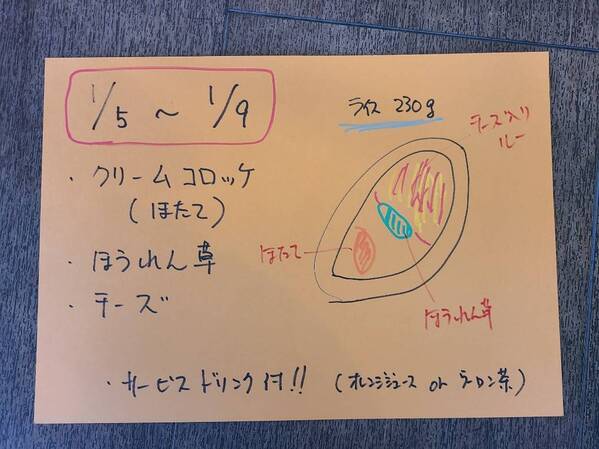 1/5 ~ 1/9
・クリームコロッケ
(ほたて)
・ほうれん草
・チーズ
ライス 230g
チーズ入り
ルー
ほたて
ほうれん草
・サービスドリンク付!! (オレンジジュース or ウーロン茶)